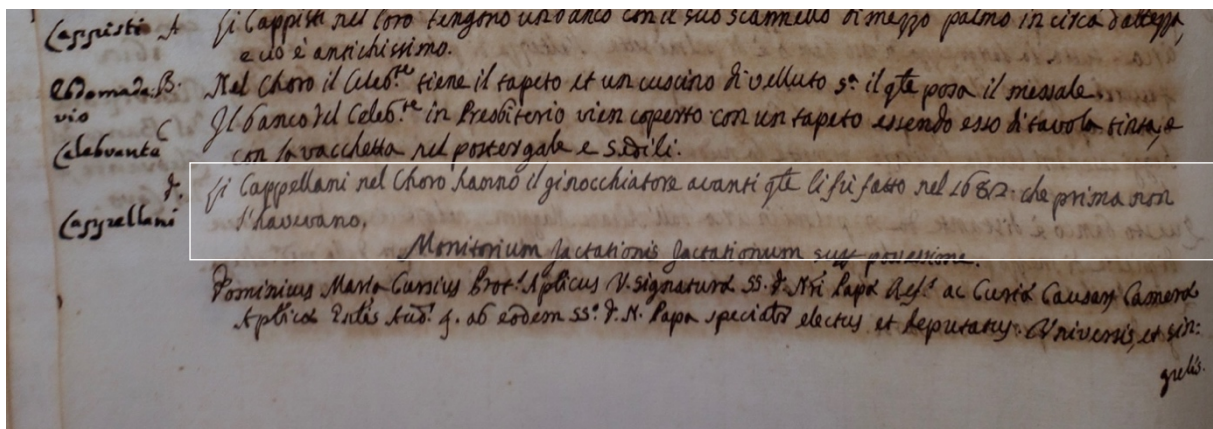 Cappisti A
Li Cappisti nel Coro tengono un banco con il suo scannello di mezzo palmo in circa d'altezza,
e uo è antichissimo.
Ebdomada: B.
vio
Nel Choro il Celeb.te tiene il tapeto et un cuscino di velluto s.a il qle posa il messale.
C
Celebrante
Il banco del Celeb.te in Presbiterio vien coperto con un tapeto essendo esso di tavola tinta, e
con la vacchetta nel postergale e sedili.
d.
Cappellani
Li Cappellani nel Choro hanno il ginocchiatore avanti qle li fu fatto nel 1682. che prima non
l'havevano.
Monitorium Jactationis Jactationum sup possessione.
Dominicus Maria Cursius Prot. Aplicus V. signaturæ SS. D. Nri Papæ Ref. ac Curiæ Causar Cameræ
Aplicæ Gnlis Aud. q. ab eodem SS.o D. N. Papa specialr electus et deputatus. Universis, et sin:
gulis.